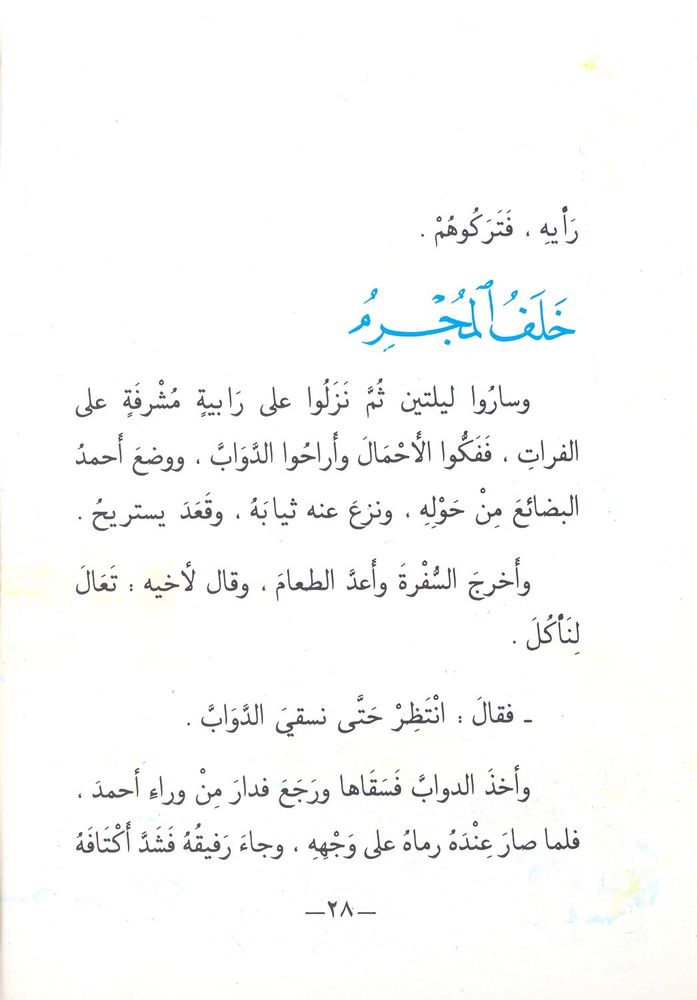 رَأْيِهِ ، فَتَرَكُوهُمْ .
خَلَفُ ٱلمُجْرِمُ
وسارُوا ليلتين ثُمَّ نَزَلُوا على رَابيةٍ مُشْرفَةٍ على
الفراتِ ، فَفَكُّوا الأَحْمَالَ وأَراحُوا الدَّوَابَّ ، ووضعَ أَحمدُ
البضائعَ مِنْ حَوْلِهِ ، ونزعَ عنه ثيابَهُ ، وقَعَدَ يستريحُ .
وأَخرجَ السُّفْرةَ وأَعدَّ الطعامَ ، وقال لأَخيه : تَعَالَ
لِنَأْكُلَ .
ـ فقالَ : انْتَظِرْ حَتَّى نسقيَ الدَّوَابَّ .
وأخذَ الدوابَّ فَسَقَاها ورَجَعَ فدارَ مِنْ وراءِ أحمدَ ،
فلما صارَ عِنْدَهُ رماهُ على وَجْهِهِ ، وجاءَ رَفيقُهُ فَشَدَّ أَكْتَافَهُ
—٢٨—